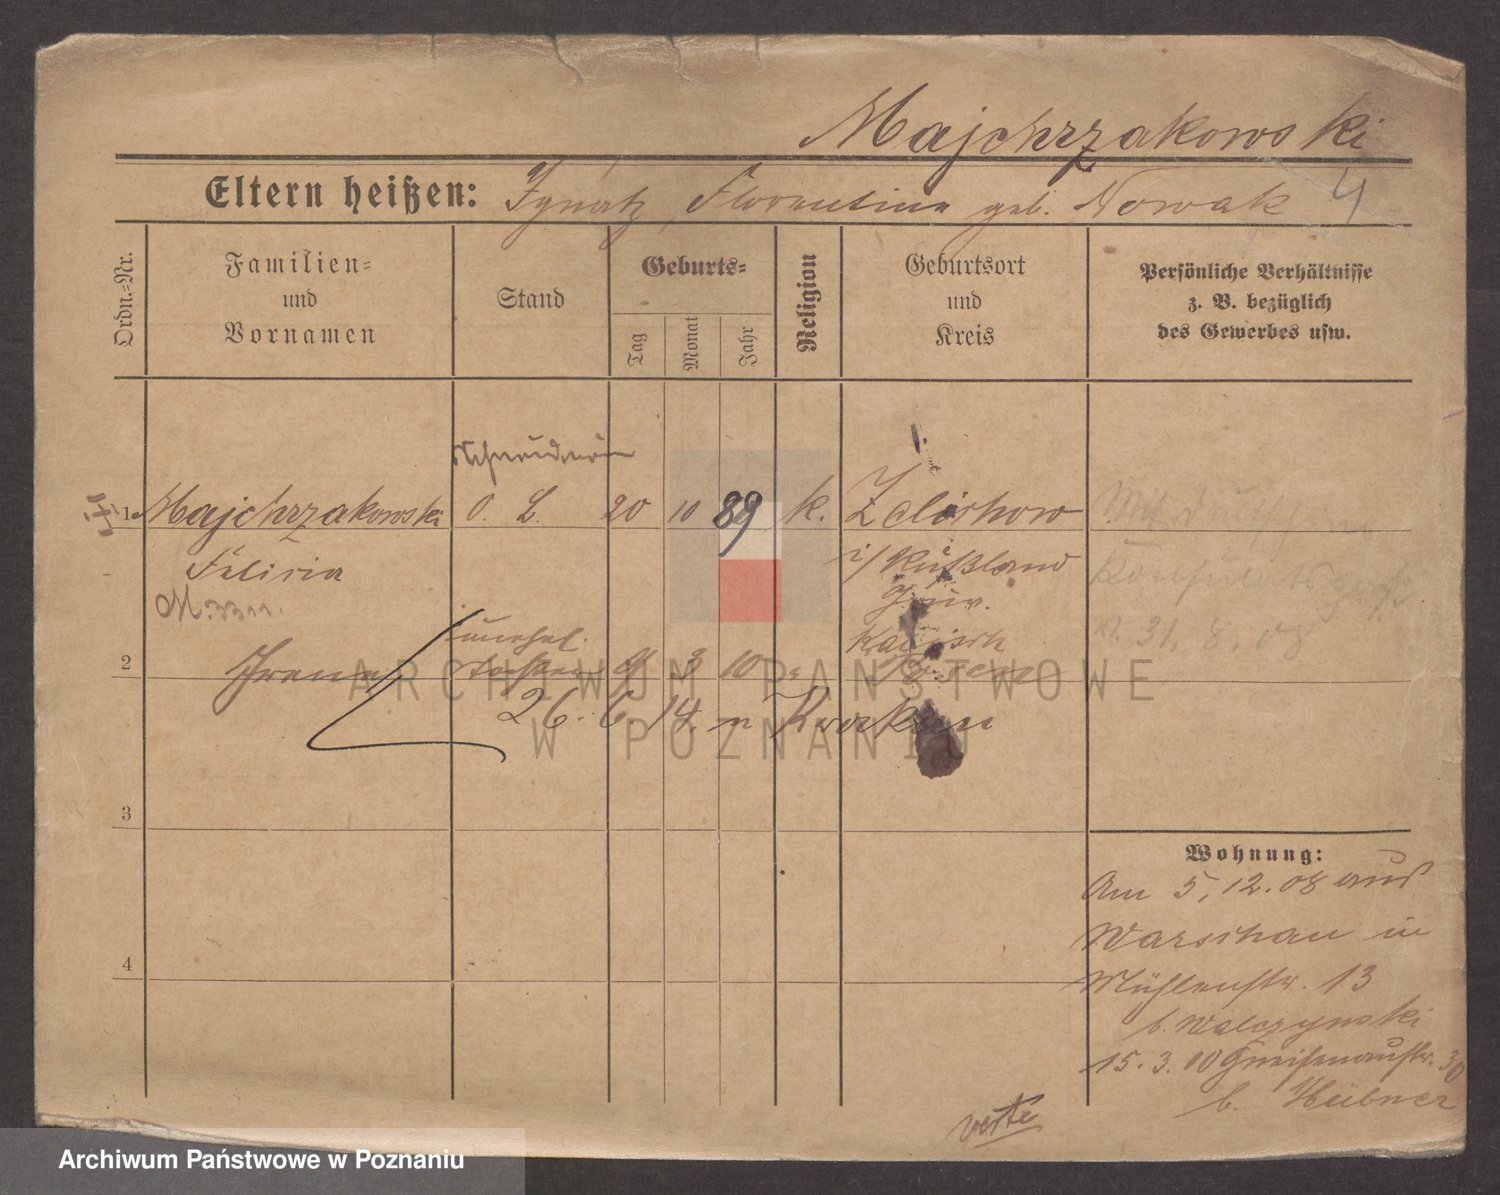 Majchrzakowski
Eltern heißen: Ignatz, Florentine geb. Nowak 4
Ordn.-Nr.
Familien-
und
Vornamen
Stand
Geburts-
Tag
Monat
Jahr
Religion
Geburtsort
und
Kreis
Persönliche Verhältnisse
z. B. bezüglich
des Gewerbes usw.
Schneiderin
1 Majchrzakowski O. L. 20 10 89 k. Zelishow
Felicia
i/Rußland
Gouv.
Kalisch
M. 3311.
Mit deutschem
Konsulats
v. 31. 8. 08
unehel.
2 Irena Tochter 9 3 10 " Posen
26. 6. 14. n Kroko
3
4
Wohnung:
Am 5. 12. 08 aus
Warschau in
Mühlenstr. 13
b. Walczynski
15. 3. 10 Gneisenaustr. 30
b. Hübner
verte
ARCHIWUM PAŃSTWOWE
W POZNANIU
Archiwum Państwowe w Poznaniu